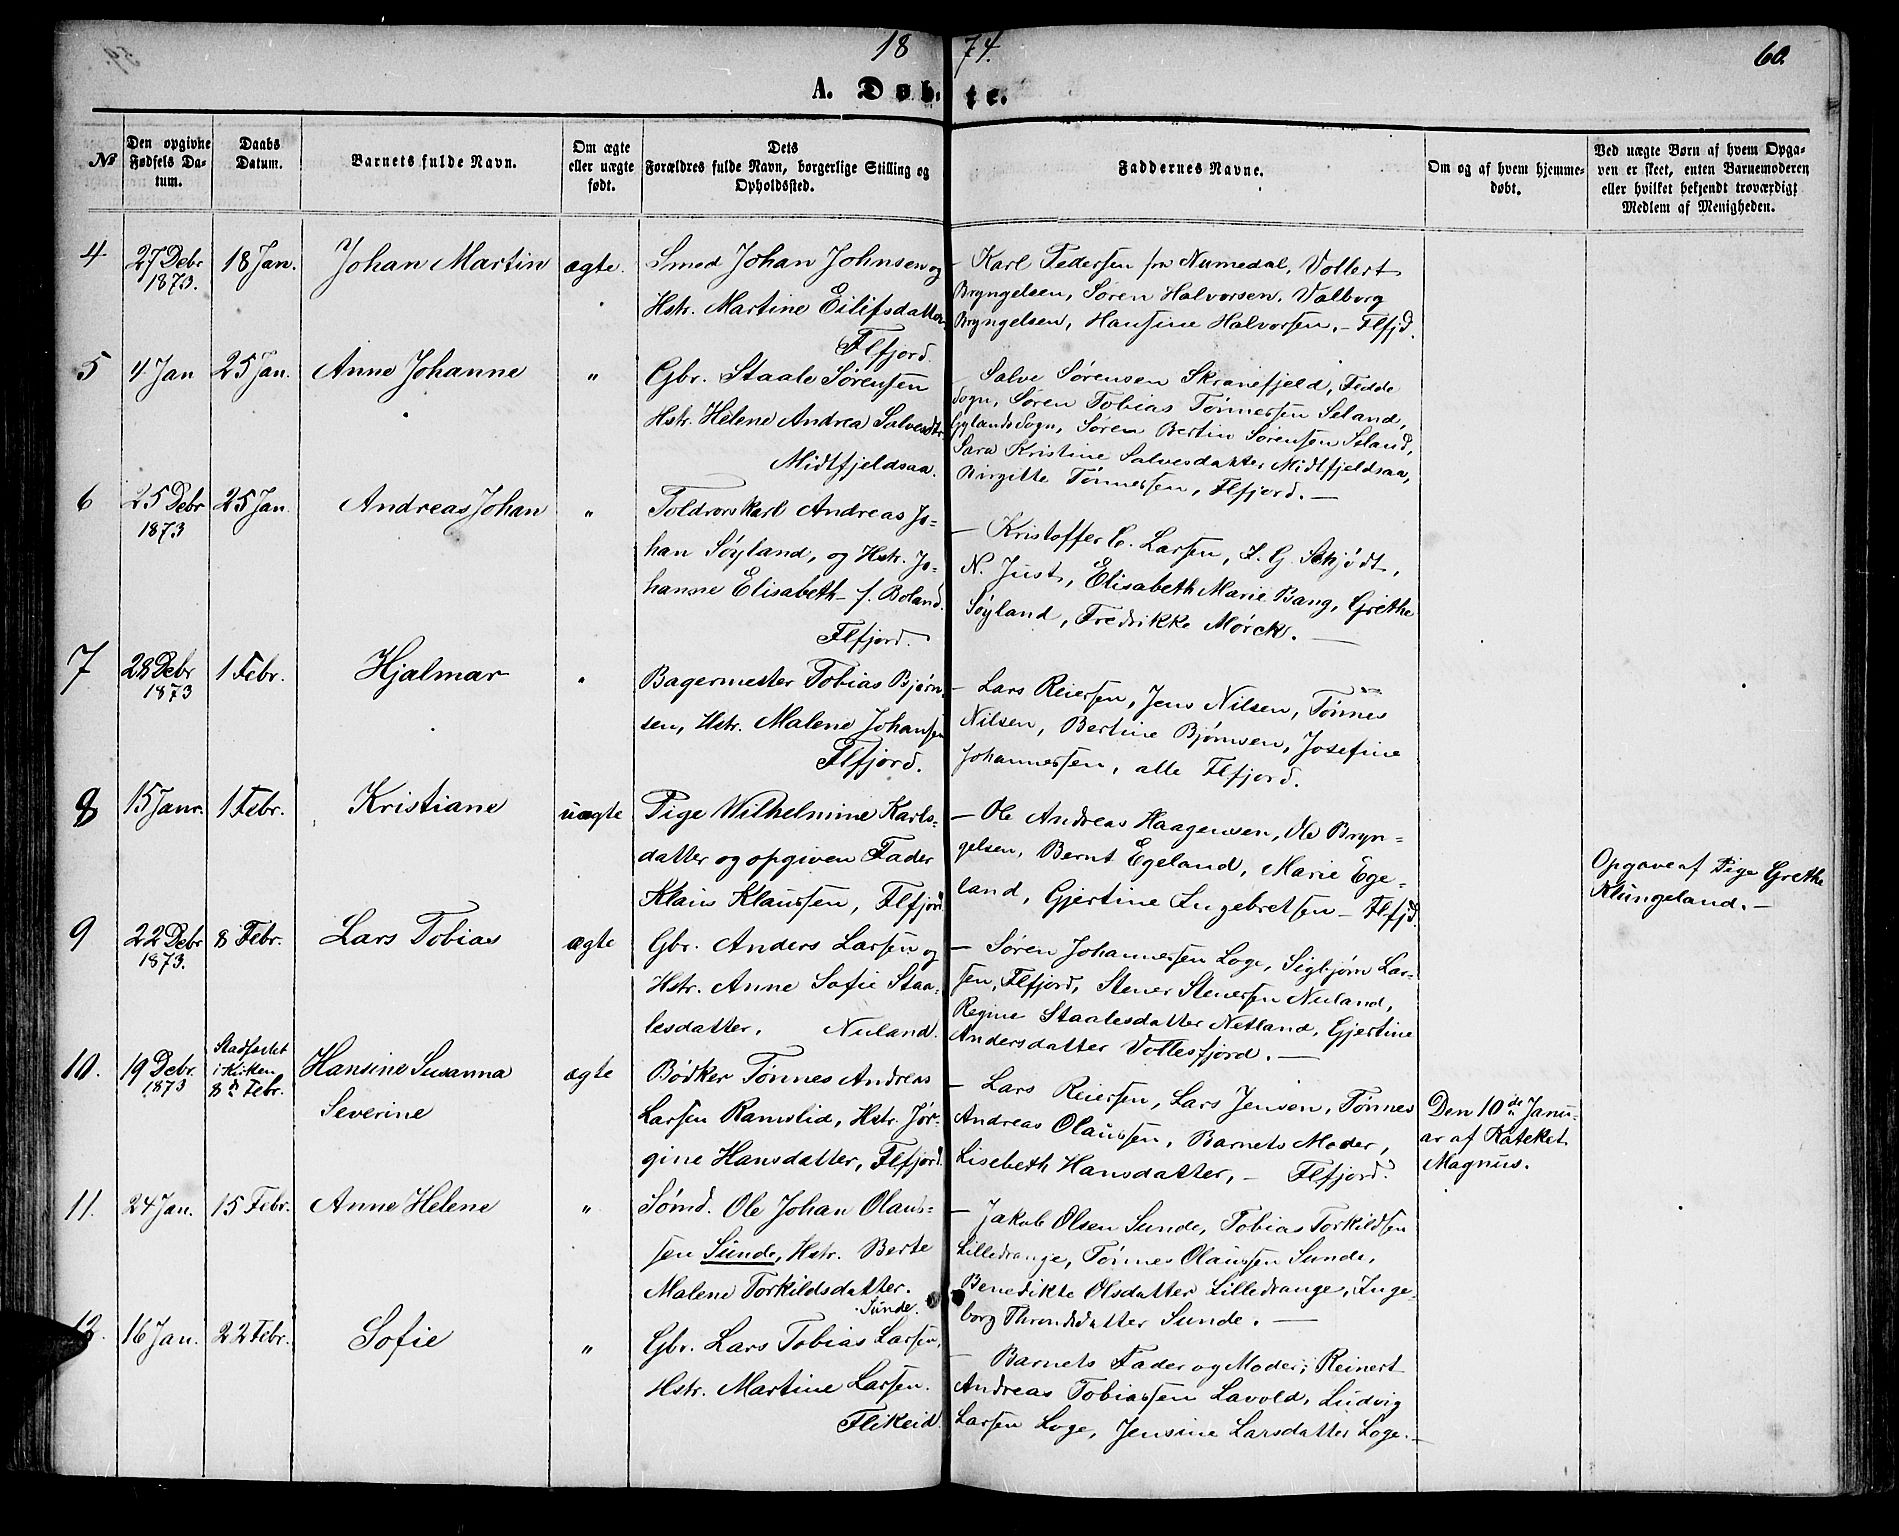 18 74.
60.
A. Døbte.
No
Den opgivne Fødsels Datum.
Daabs Datum.
Barnets fulde Navn.
Om ægte eller uægte født.
Dets Forældres fulde Navn, borgerlige Stilling og Opholdssted.
Faddernes Navne.
Om og af hvem hjemmedøbt.
Ved uægte Børn af hvem Opgaven er skeet, enten Barnemoderen eller hvilket bekjendt troværdigt Medlem af Menigheden.
4
27 Debr 1873.
18 Jan.
Johan Martin
ægte.
Smed Johan Johnsen og
Hstr. Martine Eilifsdatter
Flfjord.
- Karl Pedersen fra Numedal, Vollert
Bryngelsen, Søren Halvorsen, Valborg
Bryngelsen, Hansine Halvorsen. - Flfjd.
5
4 Jan
25 Jan.
Anne Johanne
"
Gbr. Staale Sørensen
Hstr. Helene Andrea Salvesdtr
Midtfjeldsaa.
- Salve Sørensen Skranefjeld, Fedde
Sogn, Søren Tobias Tønnessen Seland,
Gylands Sogn, Søren Bertin Sørensen Seland,
Sara Kristine Salvesdatter Midtfjeldsaa,
Birgitte Tønnessen, Flfjord. -
6
25 Debr 1873
25 Jan.
Andreas Johan
"
Toldrorskarl Andreas Jo-
han Søyland, og Hstr. Jo-
hanne Elisabeth f. Boland.
Flfjord.
- Kristoffer C. Larsen, L. G. Schjødt,
N. Just, Elisabeth Marie Bang, Grethe
Søyland, Fredrikke Mørck. -
7
28 Debr 1873
1 Febr.
Hjalmar
"
Bagermester Tobias Bjørn-
sen, Hstr. Malene Johansen
Flfjord.
- Lars Reiersen, Jens Nilsen, Tønnes
Nilsen, Bertine Bjørnsen, Josefine
Johannessen, alle Flfjord.
8
15 Janr.
1 Febr.
Kristiane
uægte
Pige Wilhelmine Karls-
datter og opgiven Fader
Klaus Klaussen, Flfjord
- Ole Andreas Haagensen, Ole Bryn-
gelsen, Bernt Egeland, Marie Ege-
land, Gjertine Ingebretsen - Flfjd.
Opgave af Pige Grethe
Klungeland. -
9
22 Debr 1873.
8 Febr.
Lars Tobias
ægte
Gbr. Anders Larsen og
Hstr. Anne Sofie Staa-
lesdatter. Nuland.
- Søren Johannessen Loge, Sigbjørn Lar-
sen, Flfjord, Stener Stenersen Nuland,
Regine Staalesdatter Netland, Gjertine
Andersdatter Vollesfjord. -
10.
19 Debr. 1873
Stadfæstet
i Kirken
8de Febr.
Hansine Susanna
Severine
ægte
Bødker Tønnes Andreas
Larsen Ramslid, Hstr. Jør-
gine Hansdatter, Flfjord.
- Lars Reiersen, Lars Jensen, Tønnes
Andreas Olaussen, Barnets Moder,
Lisebeth Hansdatter, - Flfjord.
Den 10de Janu-
ar af Kateket
Magnus.
11.
24 Jan.
15 Febr.
Anne Helene
"
Sømd. Ole Johan Olaus-
sen Sunde, Hstr. Berte
Malene Torkildsdatter.
Sunde.
- Jakob Olsen Sunde, Tobias Torkildsen
Lilledrange, Tønnes Olaussen Sunde,
Benedikte Olsdatter Lilledrange, Inge-
borg Throndsdatter Sunde. -
12.
16 Jan.
22 Febr.
Sofie
"
Gbr. Lars Tobias Larsen,
Hstr. Martine Larsen.
Flikeid.
- Barnets Fader og Moder, Reinert
Andreas Tobiassen Lavold, Ludvig
Larsen Loge, Jensine Larsdatter Loge. -